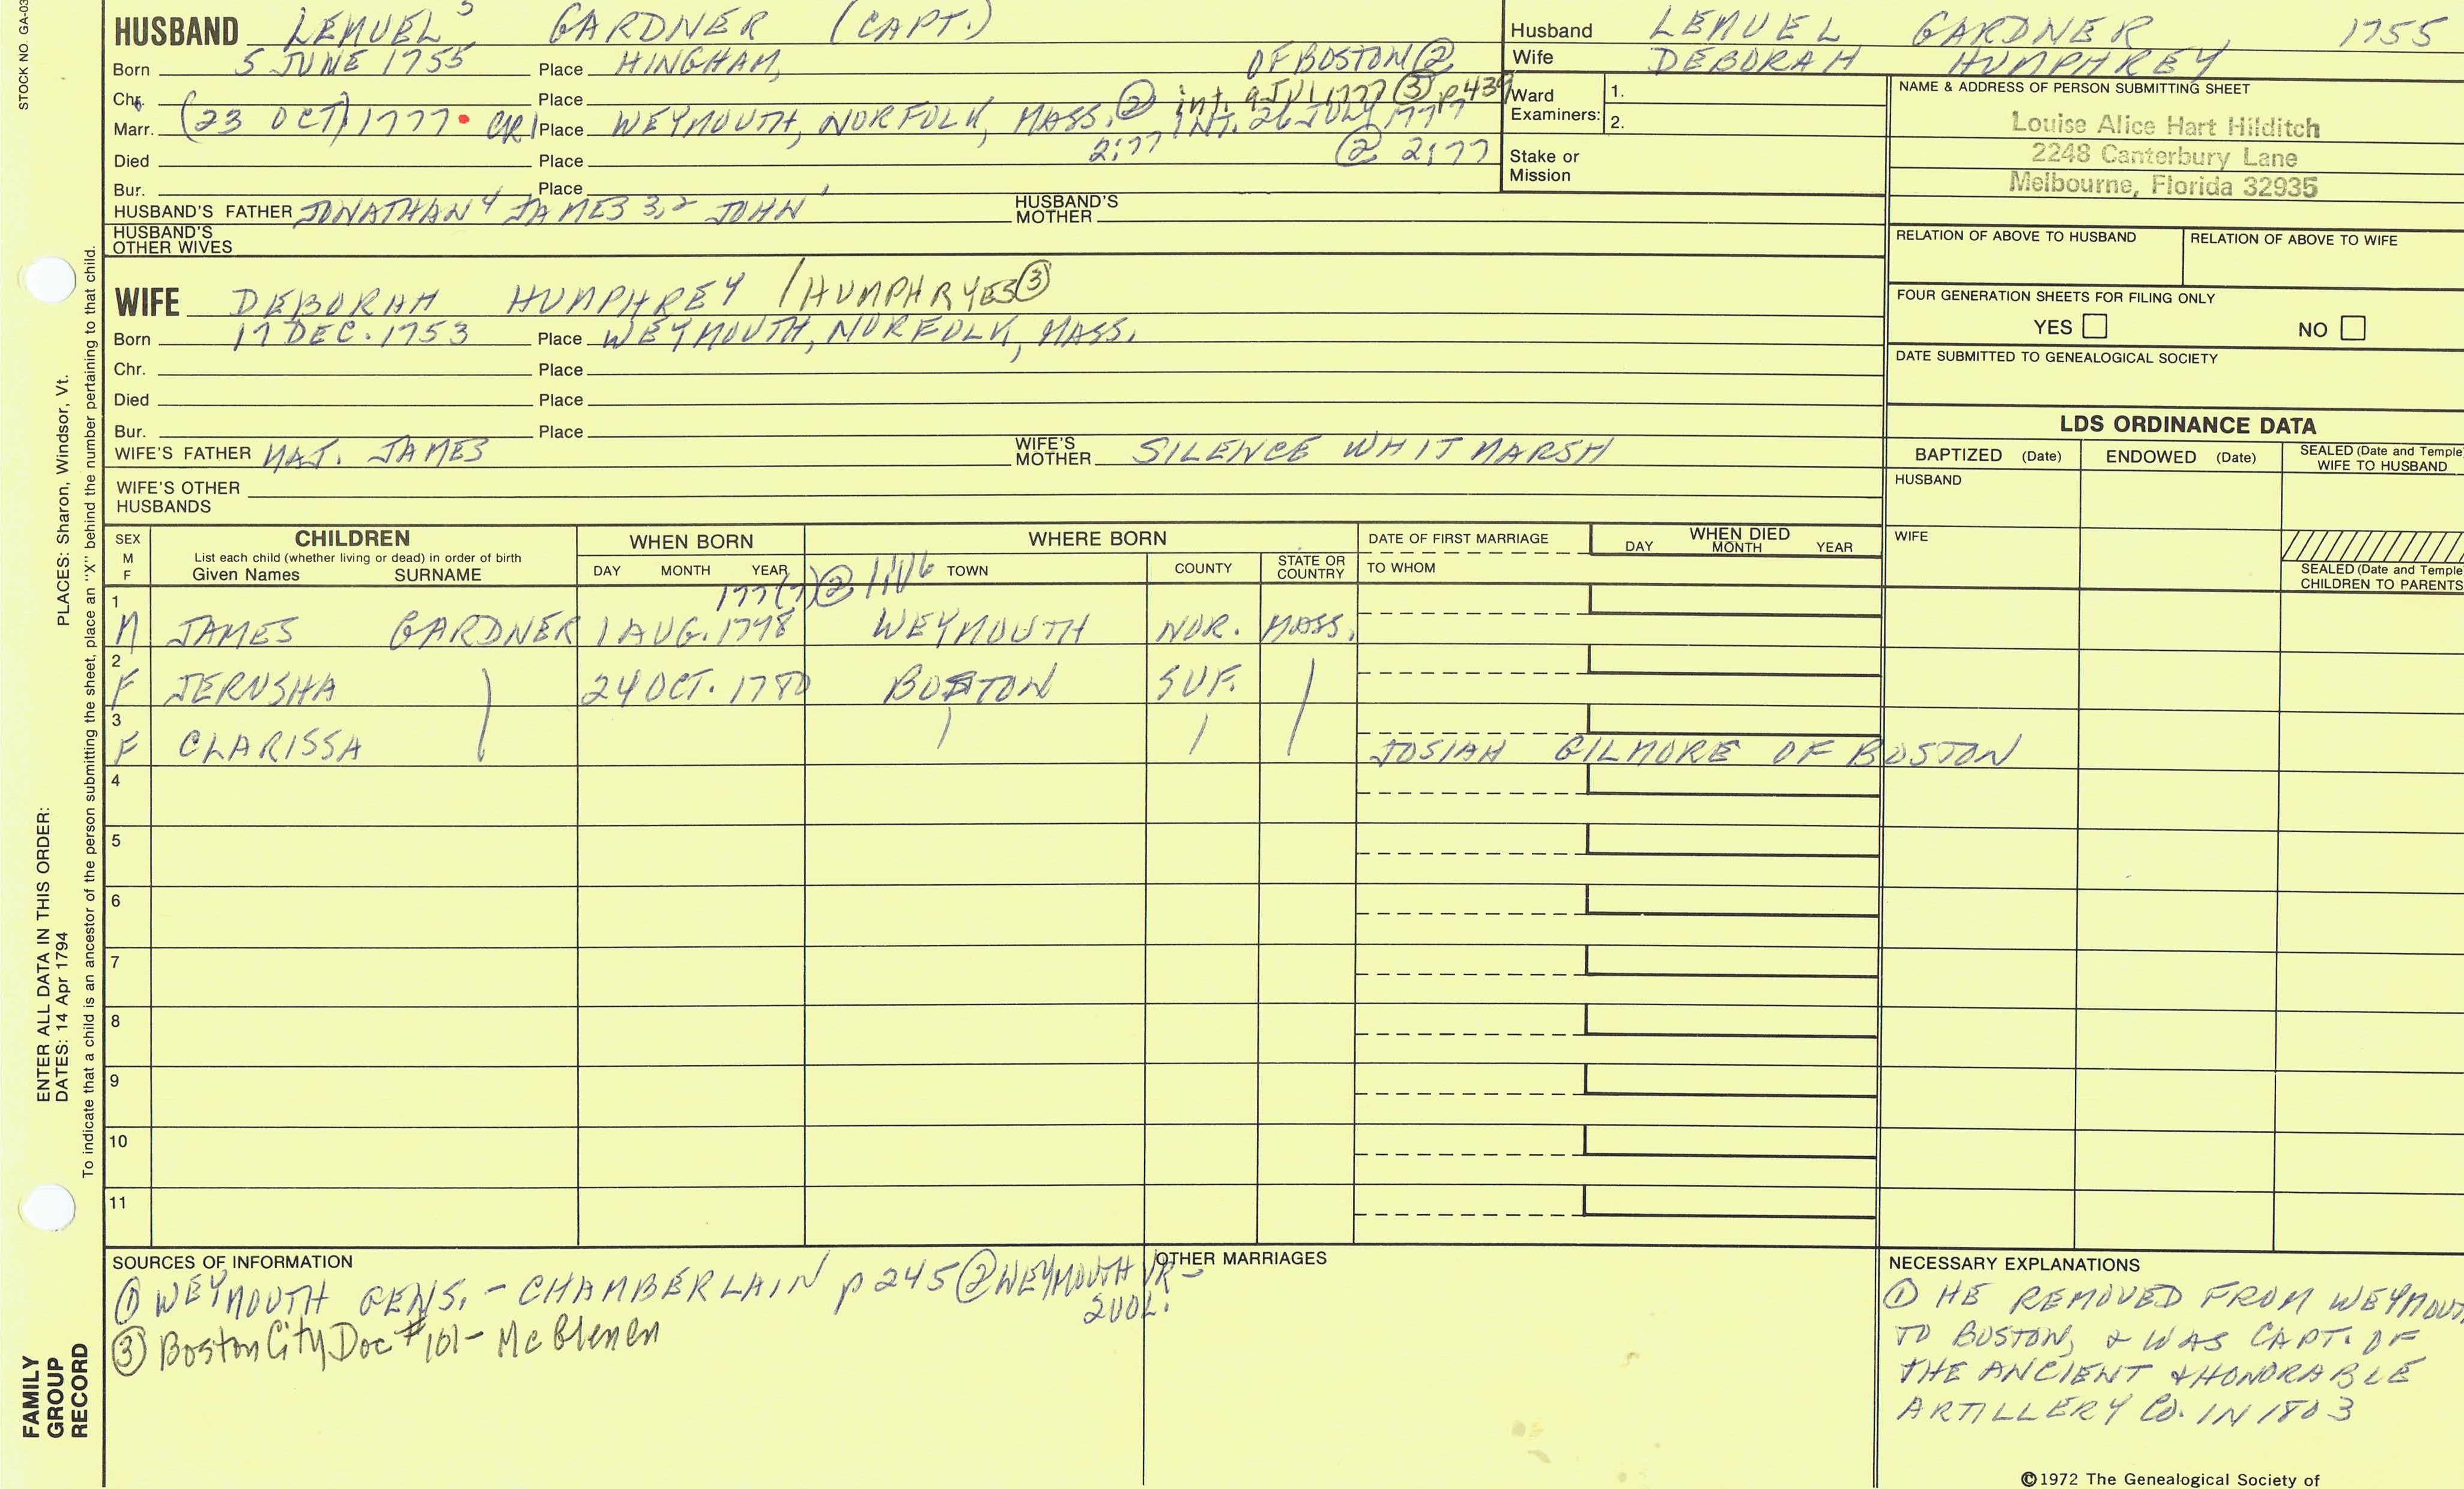 STOCK NO. GA-03
HUSBAND LEMUEL 5 GARDNER (CAPT.)
Born 5 JUNE 1755 Place HINGHAM, OF BOSTON ②
Chr. Place int. 9 JUL 1777 ③ p439
Marr. (23 OCT) 1777 • CR1 Place WEYMOUTH, NORFOLK, MASS. ② INT. 26 JULY 1777
Died Place 2;77 ② 2;77
Bur. Place
HUSBAND'S FATHER JONATHAN 4 JAMES 3,2 JOHN 1 HUSBAND'S MOTHER
HUSBAND'S OTHER WIVES
WIFE DEBORAH HUMPHREY / HUMPHRYES ③
Born 17 DEC. 1753 Place WEYMOUTH, NORFOLK, MASS.
Chr. Place
Died Place
Bur. Place
WIFE'S FATHER MAJ. JAMES WIFE'S MOTHER SILENCE WHITMARSH
WIFE'S OTHER HUSBANDS
Husband LEMUEL GARDNER, 1755
Wife DEBORAH HUMPHREY
Ward Examiners: 1.
2.
Stake or Mission
NAME & ADDRESS OF PERSON SUBMITTING SHEET
Louise Alice Hart Hilditch
2248 Canterbury Lane
Melbourne, Florida 32935
RELATION OF ABOVE TO HUSBAND RELATION OF ABOVE TO WIFE
FOUR GENERATION SHEETS FOR FILING ONLY
YES NO
DATE SUBMITTED TO GENEALOGICAL SOCIETY
LDS ORDINANCE DATA
BAPTIZED (Date) ENDOWED (Date) SEALED (Date and Temple) WIFE TO HUSBAND
HUSBAND
WIFE
SEALED (Date and Temple) CHILDREN TO PARENTS
SEX M F CHILDREN WHEN BORN WHERE BORN DATE OF FIRST MARRIAGE WHEN DIED
List each child (whether living or dead) in order of birth
Given Names SURNAME DAY MONTH YEAR TOWN COUNTY STATE OR COUNTRY TO WHOM DAY MONTH YEAR
177(7) ② 1;116
1 M JAMES GARDNER 1 AUG. 1778 WEYMOUTH NOR. MASS.
2 F JERUSHA 24 OCT. 1780 BOSTON SUF.
3 F CLARISSA JOSIAH GILMORE OF BOSTON
4
5
6
7
8
9
10
11
SOURCES OF INFORMATION
① WEYMOUTH GENS. - CHAMBERLAIN p 245 ② WEYMOUTH VR -
2 VOL.
③ Boston City Doc #101 - McGlenen
OTHER MARRIAGES
NECESSARY EXPLANATIONS
① HE REMOVED FROM WEYMOUT
TO BOSTON, & WAS CAPT. OF
THE ANCIENT & HONORABLE
ARTILLERY CO. IN 1803
©1972 The Genealogical Society of
PLACES: Sharon, Windsor, Vt.
ENTER ALL DATA IN THIS ORDER:
DATES: 14 Apr 1794
To indicate that a child is an ancestor of the person submitting the sheet, place an "X" behind the number pertaining to that child.
FAMILY
GROUP
RECORD